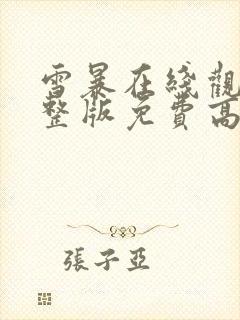 雪暴在线觀
整版免費高
張子亞